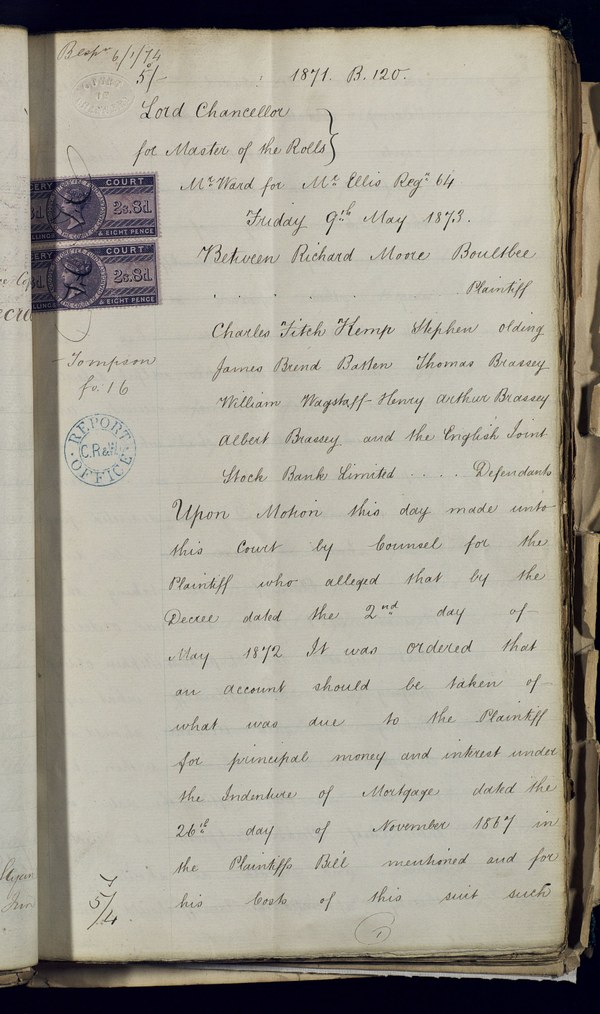 Besp^n 6/1/74
5/-
1871. B. 120.
Lord Chancellor
for Master of the Rolls
Mr Ward for Mr Ellis Regr 64
COURT
2s.8d.
& EIGHT PENCE
COURT
2s.8d.
& EIGHT PENCE
Friday 9th May 1873.
Between Richard Moore Boultbee
Plaintiff
Tompson
fo. 16
REPORT OFFICE
Charles Fitch Kemp Stephen Olding
James Brend Batten Thomas Brassey
William Wagstaff Henry Arthur Brassey
Albert Brassey and the English Joint
Stock Bank Limited . . . . . Defendants
Upon Motion this day made unto
this Court by Counsel for the
Plaintiff who alleged that by the
Decree dated the 2nd day of
May 1872 It was ordered that
an account should be taken of
what was due to the Plaintiff
for principal money and interest under
the Indenture of Mortgage dated the
26th day of November 1867 in
the Plaintiffs Bill mentioned and for
his Costs of this suit such
5/4
1